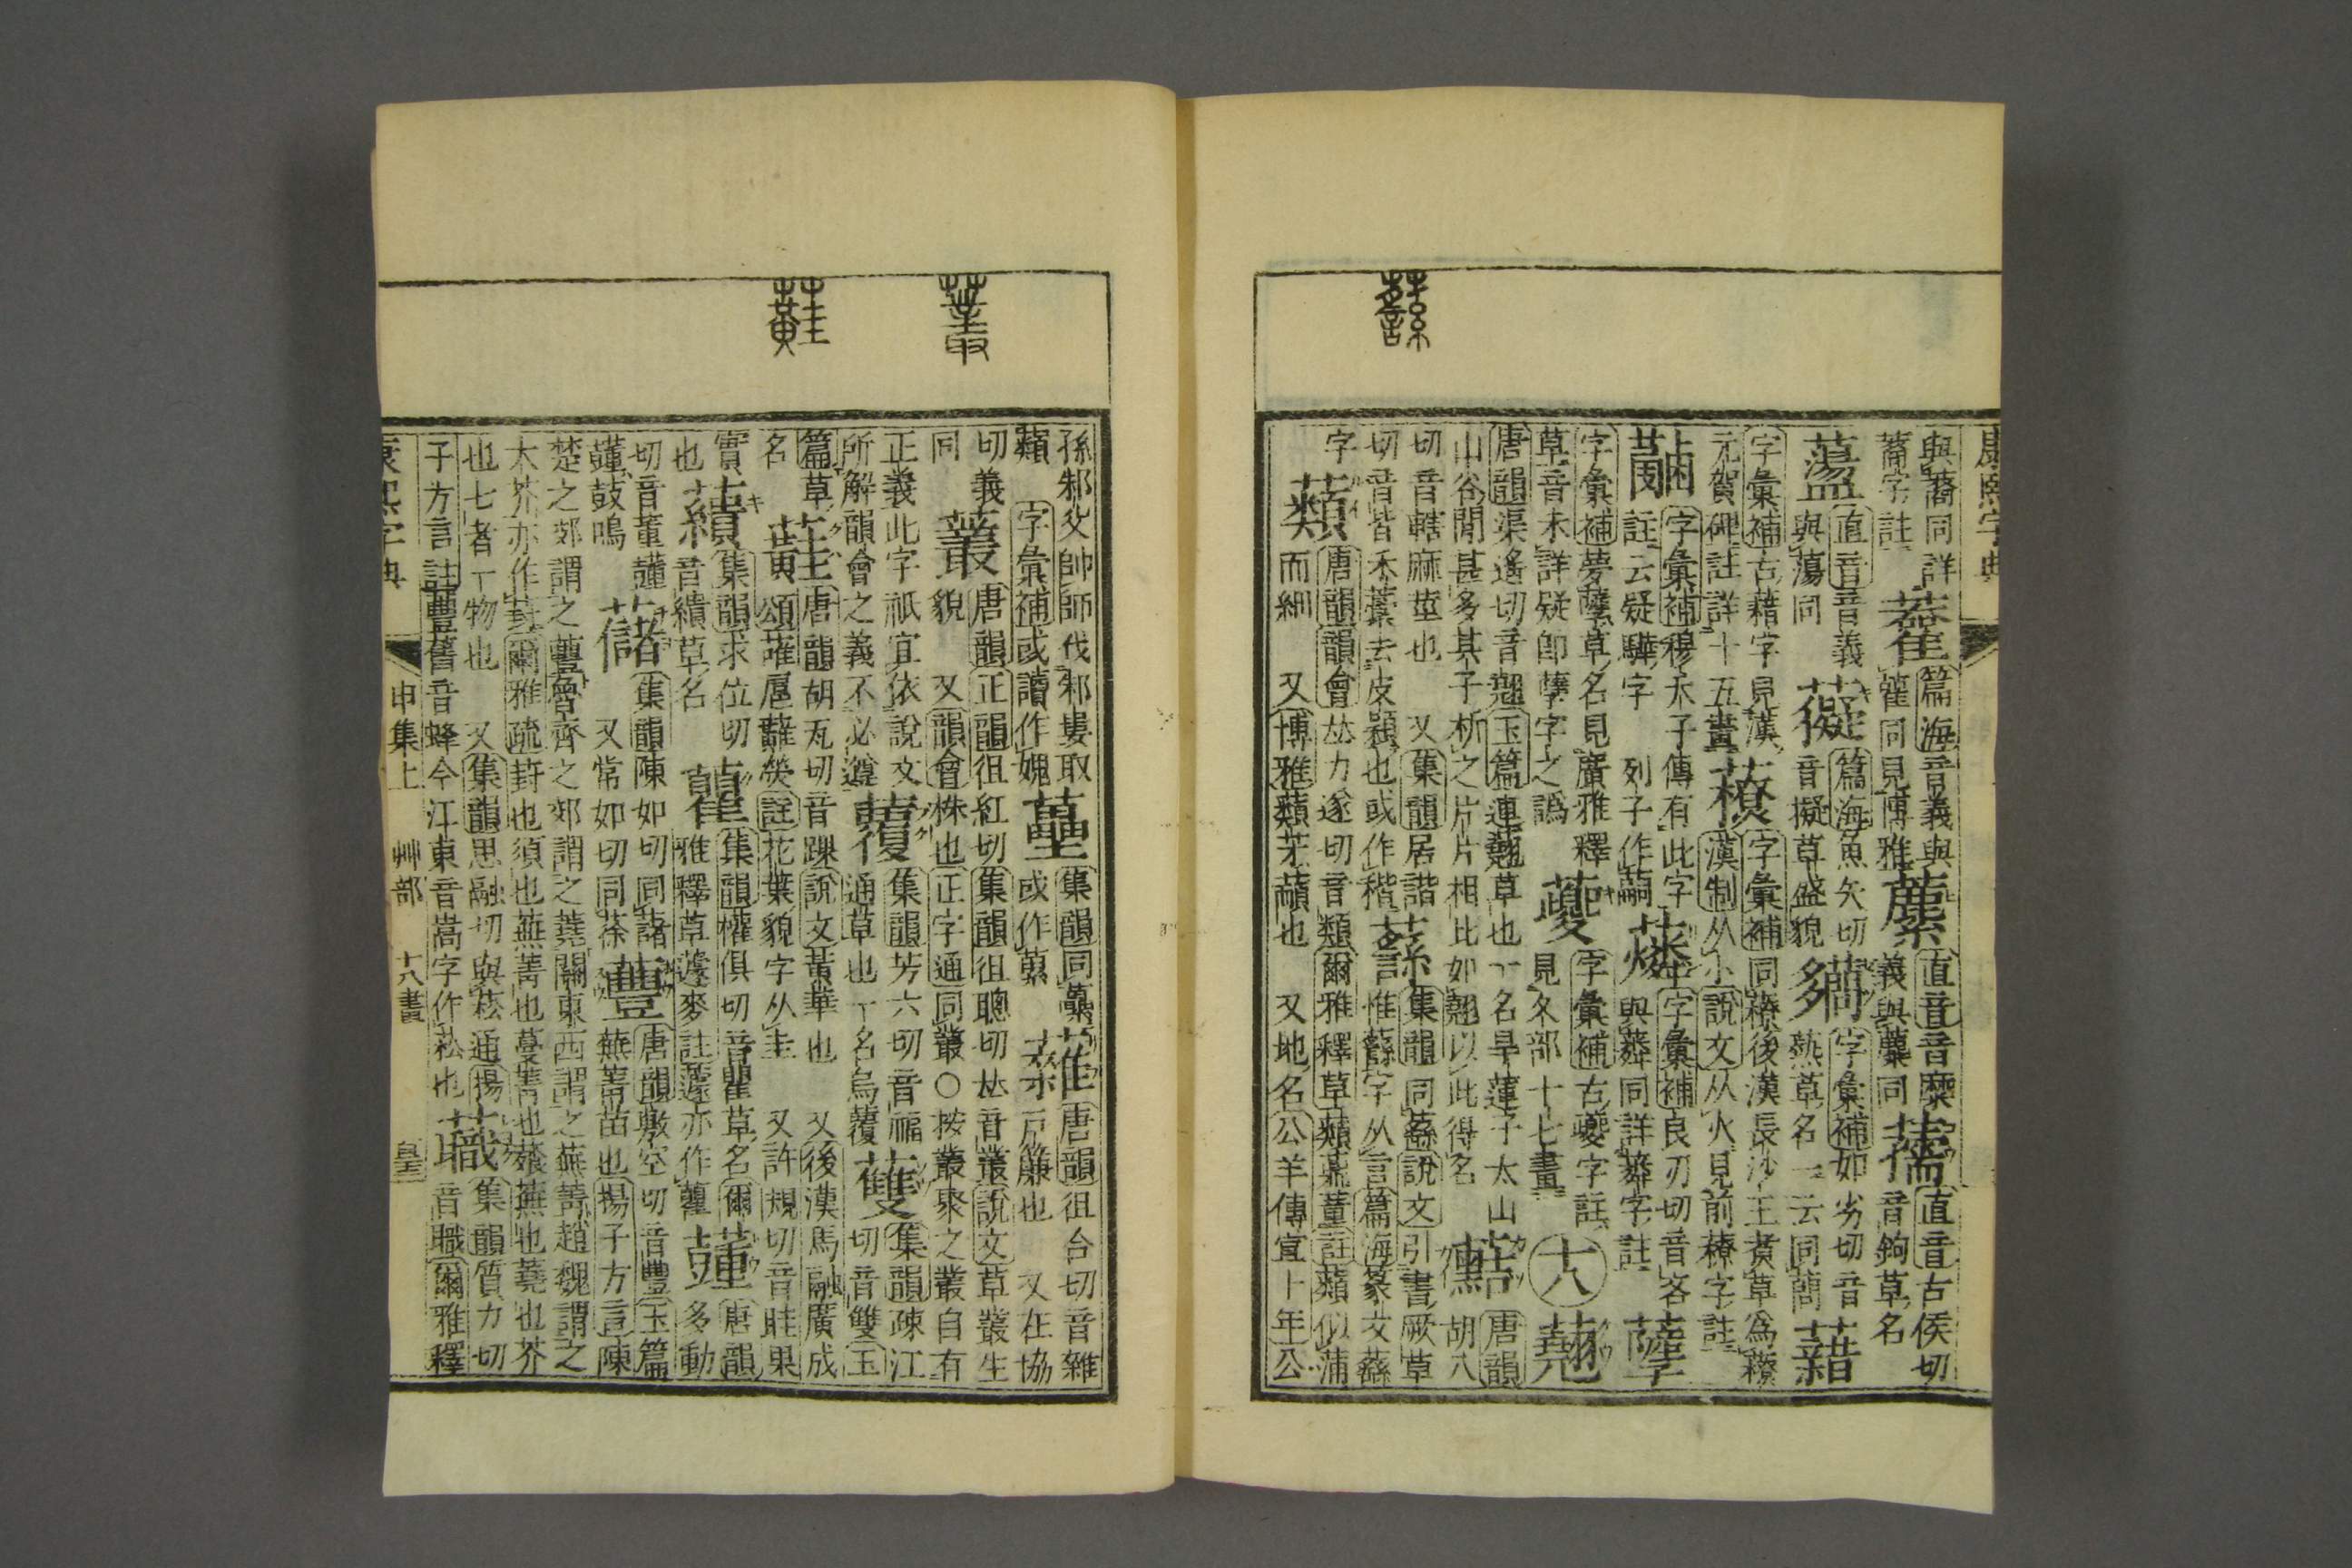 康熙字典
與藹同詳
直音音義
篇海音義與
直音音糜
直音古侯切
音鉤草名
篇海魚矢切
音擬草盛貌
字彙補如劣切音
爇草名一云同藺
與蕩同
字彙補古藉字見漢
元賀碑註詳十五畫
字彙補同藔後漢長沙王煑草爲藔
漢制从小說文从火見前藔字註
字彙補穆天子傳有此字
註云疑驊字 列子作
字彙補良刃切音吝
字彙補夢薩草名見廣雅釋
草音未詳疑卽孽字之譌
字彙補古夔字註
見夂部十七畫
十八
唐韻
唐韻渠遙切音翹玉篇連翹草也一名旱蓮子太山
山谷閒甚多其子析之片片相比如翹以此得名
胡八
切音轄麻莖也 又集韻居諧
切音皆禾藳去皮穎也或作稭
集韻同蘨說文引書厥草
惟蘨字从言篇海篆文蘨
字
蘱
唐韻韻會𠀤力遂切音類爾雅釋草蘱薡蕫註蘱似蒲
而細 又博雅蘱茅蘈也 又地名公羊傳宣十年公
孫邾父帥師伐邾婁取
蘱 字彙補或讀作媿
集韻同虆
或作蔂
唐韻徂合切音雜
戸簾也 又在協
切義
同
叢
唐韻正韻徂紅切集韻徂聰切𠀤音叢說文草叢生
貌 又韻會株也正字通同叢○按叢聚之叢自有
正義此字祇宜依說文
所解韻會之義不必遵
覆
集韻芳六切音福
通草也一名烏覆
集韻疎江
切音雙玉
篇草
名
唐韻胡瓦切音踝說文黃華也 又後漢馬融廣成
頌蘳扈蘳熒註花葉貌字从圭 又許規切音眭果
實
也
集韻求位切
音繢草名
集韻權俱切音瞿草名爾
雅釋草蘧麥註蘧亦作蘿
唐韻
多動
切音董蘴
鼓鳴
集韻陳如切同藷
又常如切同荼
蘴
唐韻敷空切音豐玉篇
蕪菁苗也揚子方言陳
楚之郊謂之蘴魯齊之郊謂之蕘關東西謂之蕪菁趙魏謂之
大芥亦作葑爾雅疏葑也須也蕪菁也蔓菁也薞蕪也蕘也芥
也七者一物也 又集韻思融切與菘通揚
子方言註蘴舊音蜂今江東音嵩字作菘也
蘵
集韻質力切
音職爾雅釋
康熙字典 申集上 艸部 十八畫